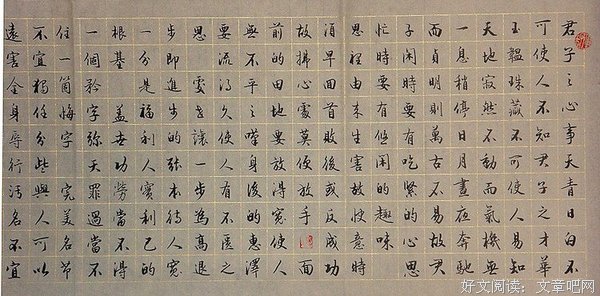 君子之心事天青日白不
可使人不知君子之才華
玉韞珠藏不可使人易知
天地寂然不動而氣機無
一息稍停日月晝夜奔馳
而貞明則萬古不易故君
子閒時要有吃緊的心思
忙時要有悠閒的趣味
恩裡由來生害故快意時
須早回首敗後或反成功
故拂心處莫便放手面
前的田地要放得寬使人
無不平之嘆身後的惠澤
要流得久使人有不匱之
思處讓一步為高退
步即進步的張本待人寬
一分是福利人實利己的
根基蓋世功勞當不得
一個矜字彌天罪過當不
任一箇悔字完美名節
不宜獨任分些與人可以
遠害全身辱行汙名不宜
好文阅读：文章吧网